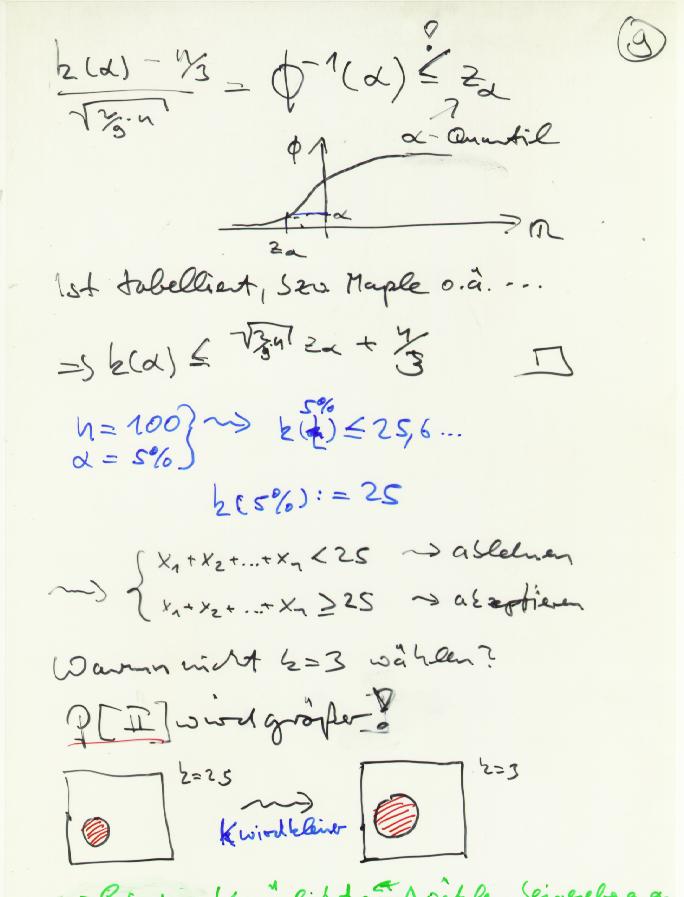 9
k(α) - n/3 / √(2/9·n) = ϕ⁻¹(α) ≤! z_α
α-Quantil
ϕ
α
ℝ
z_α
Ist tabelliert, bzw Maple o.ä. ...
⇒ k(α) ≤ √(2/9·n) z_α + n/3 □
n = 100 } ⇝ k(5%) ≤ 25,6...
α = 5%
k(5%) := 25
⇝ { x₁+x₂+...+xₙ < 25 ⇝ ablehnen
x₁+x₂+...+xₙ ≥ 25 ⇝ akzeptieren
Warum nicht k=3 wählen?
P[II] wird größer!
k=25
k=3
k wird kleiner